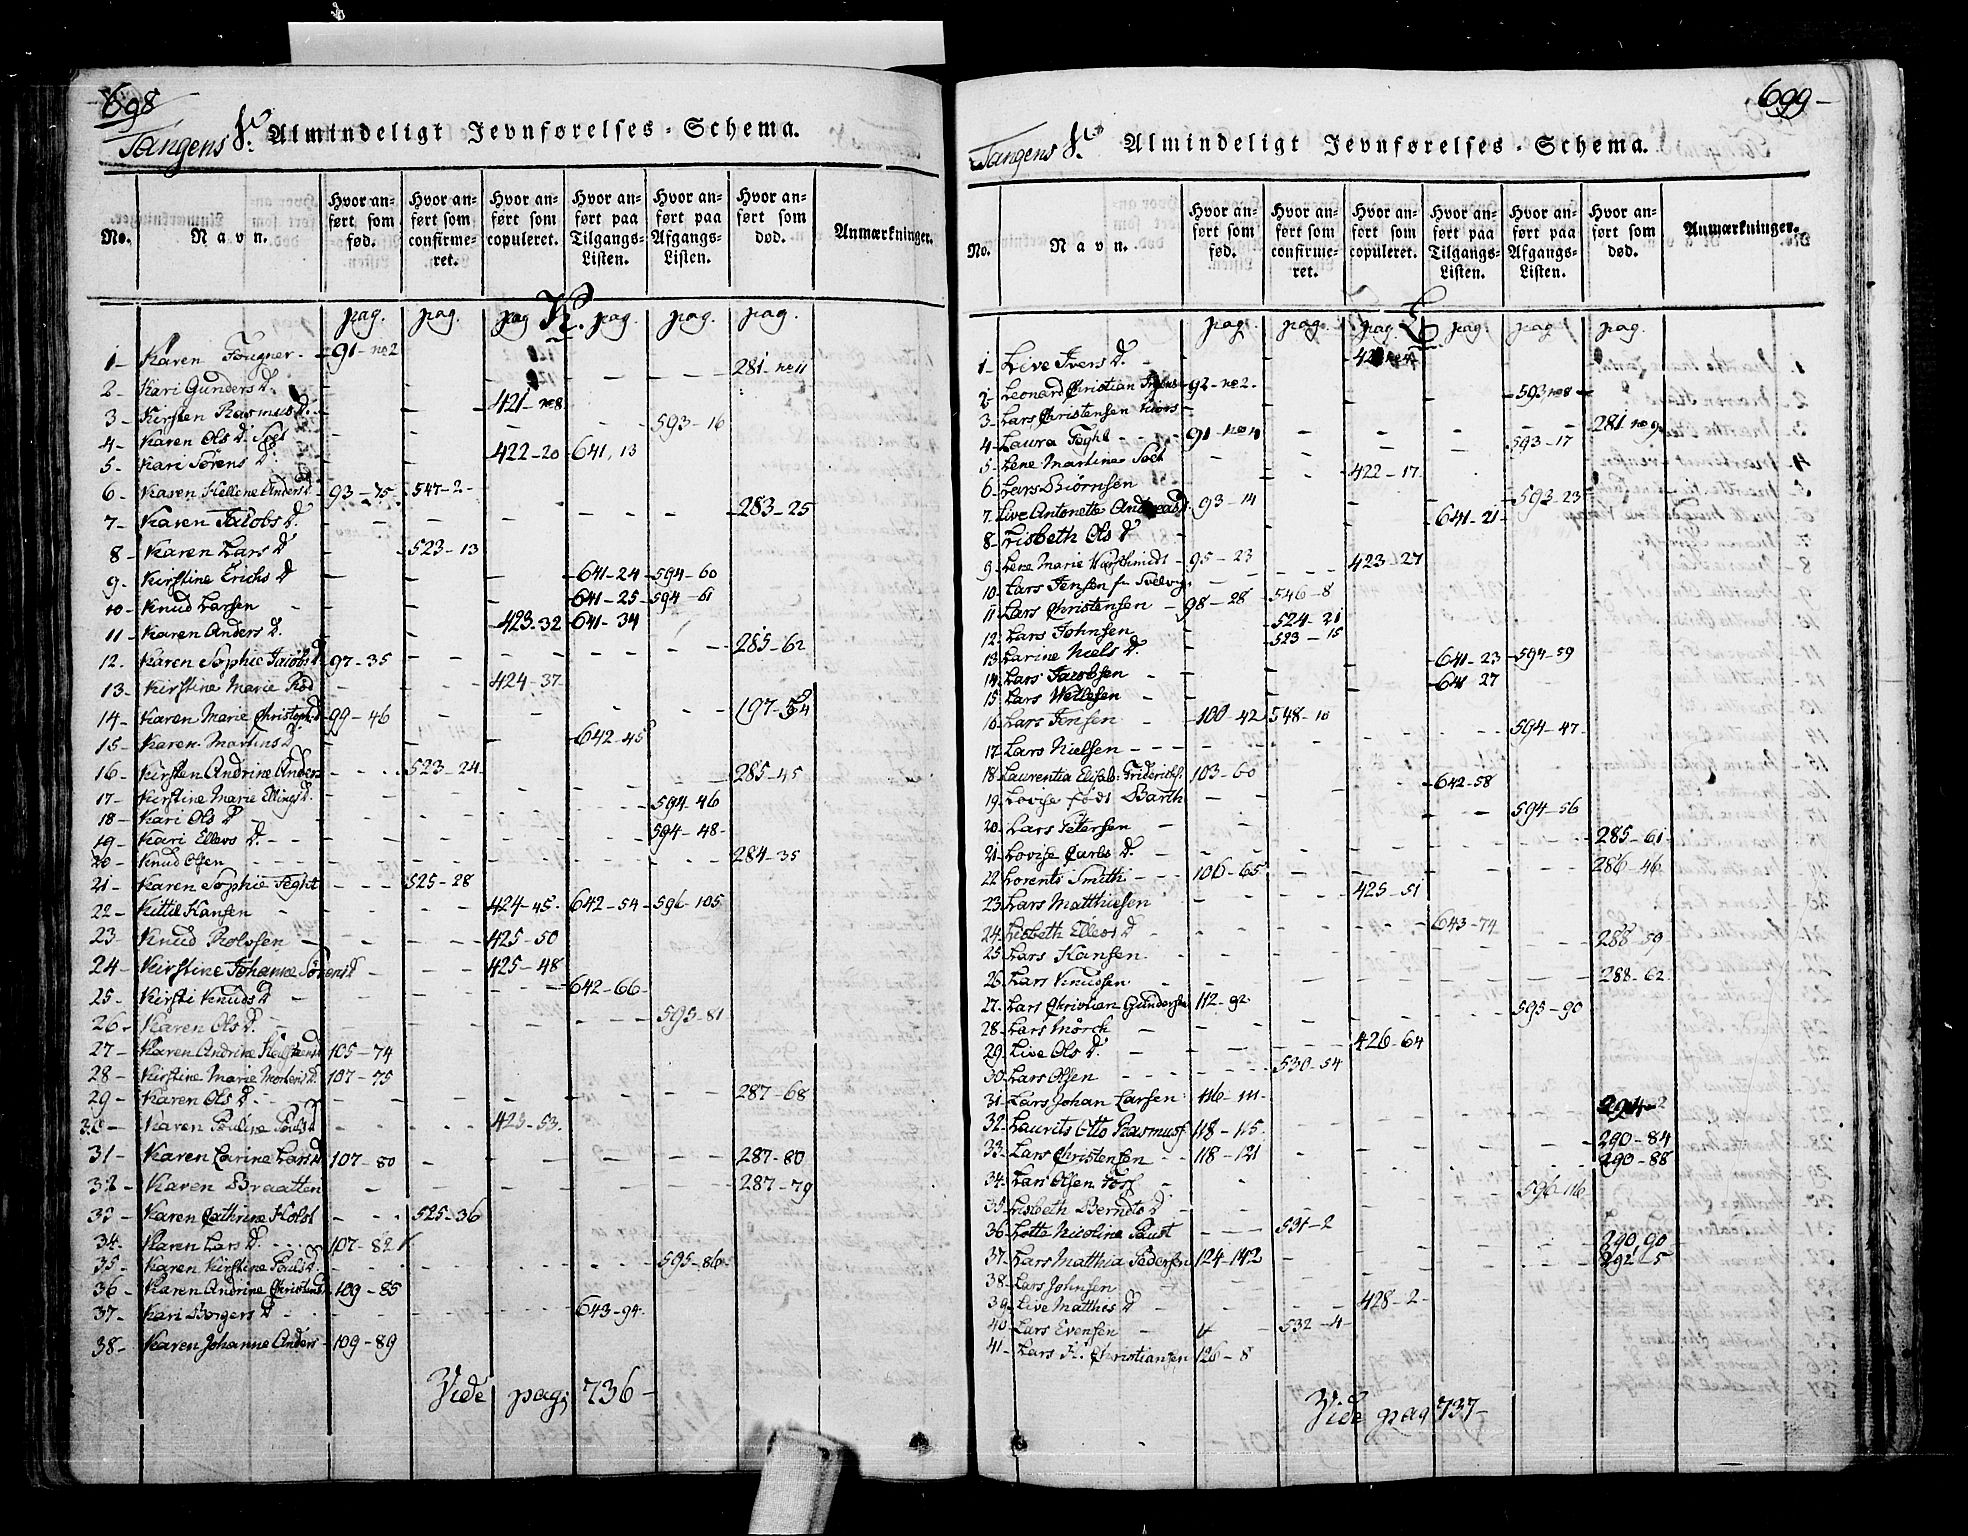 698
Tangens S. Almindeligt Jevnførelses-Schema.
No. Navn. Hvor anført som fød. Hvor anført som confirmeret. Hvor anført som copuleret. Hvor anført paa Tilgangs-Listen. Hvor anført paa Afgangs-Listen. Hvor anført som død. Anmærkninger.
K.
pag. pag. pag pag. pag. pag.
1- Karen Fougner - 91-no 2
2- Kari Gunders D. - - - - - 281-no 11
3- Kirsten Rasmus D. - - 421-no 8
4- Karen Ols D. - - - - 593-16
5- Kari Sörens D. - - 422-20 641,13
6- Karen Hellene Anders D 93-75 547-2
7- Karen Jacobs D. - - - - - 283-25
8- Karen Lars D - 523-13
9- Kirstine Erichs D - - - 641-24 594-60
10- Knud Larsen - - - 641-25 594-61
11- Karen Anders D. - - 423-32 641-34
12- Karen Sophie Jacobs D 97-35 - - - - 285-62
13- Kirstine Marie Rød - - 424-37
14- Karen Marie Christoph. D 99-46 - - - - 197-54
15- Karen Martins D - - - 642-45
16- Kirsten Andrine Anders - 523-24 - - - 285-45
17- Kirstine Marie Ellings D.
18- Kari Ols D - - - - 594-46
19- Kari Ellevs D. - - - - 594-48
20- Knud Olsen - - - - - 284-35
21- Karen Sophie Feght - 525-28
22- Kittil Hansen - - 424-45 642-54 596-105
23- Knud Rolvsen - - 425-50
24- Kirstine Johanne Sörens D - - 425-48
25- Kirsti Knuds D - - - 642-66
26- Karen Ols D. - - - - 595-81
27- Karen Andrine 105-74
28- Kirstine Marie Mortens D. 107-75
29- Karen Ols D. - - - - - 287-68
30- Karen Pauline Pouls D - - 423-53
31- Karen Carine Lars D 107-80 - - - - 287-80
32- Karen Braatten - - - - - 287-79
33- Karen Cathrine Holst - 525-36
34- Karen Lars D. 107-82
35- Karen Kirstine Pouls D. - - - - 595-86
36- Karen Andrine Christens D 109-85
37- Kari Borgers D - - - 643-94
38- Karen Johanne Anders 109-89
Vide pag; 736-
699-
Tangens S. Almindeligt Jevnførelses-Schema.
No. Navn. Hvor anført som fød. Hvor anført som confirmeret. Hvor anført som copuleret. Hvor anført paa Tilgangs-Listen. Hvor anført paa Afgangs-Listen. Hvor anført som død. Anmærkninger.
L
pag. pag. pag. pag. pag. pag.
1- Live Ivers D. - -
2- Leonard Christian 92-no 2
3- Lars Christensen - - - - 593 no 8
4- Laura Feght 91-no 11 - - - - 281 no 9
5- Lene Martine - - - - 593-17
6- Lars Biörnsen - - 422-17
7- Live Antonette Andreas D. 93-14 - - - 593-23
8- Lisbeth Ols D - - - 641-21
9- Lene Marie 95-23 - 423-27
10- Lars Jensen fr. Svelvig
11- Lars Christensen 98-28 546-8
12- Lars Johnsen - 524-21
13- Larine Niels D. - 523-15
14- Lars Jacobsen - - - 641-23 594-59
15- Lars Wetlesen - - - 641 27
16- Lars Jensen 100-42 548-10
17- Lars Nielsen - - - - 594-47
18- Laurentia Elisab: Friderichs 103-60
19- Lovise født Barth - - - 642-58
20- Lars Petersen - - - - 594-56
21- Lovise Carls D. - - - - - 285-61
22- Lorents Smith 106-65 - - - - 286-46
23- Lars Matthiesen - - 425-51
24- Lisbeth Ellevs D - - - 643-74
25- Lars Hansen - - - - - 288-59
26- Lars Knudsen - - - - - 288-62
27- Lars Christian Gundersen 112-92
28- Lars Mörck - - - - 595-90
29- Live Ols D. - - 426-64
30- Lars Olsen - 530-54
31- Lars Johan Larsen 116-111
32- Laurits Otto Rasmus 118-115 - - - - 290-84
33- Lars Christensen 118-121 - - - - 290-88
34- Lars Olsen
35- Lisbeth Berndts D - - - - 596-116
36- Lotte Nicoline Faust - 531-2
37- Lars Matthia Pedersen 124-142 - - - - 290,90
38- Lars Johnsen - - - - - 292-5
39- Live Matthes D - - 428-2
40- Lars Evensen - 532-4
41- Lars H. Christiansen 126-8
Vide pag 737-